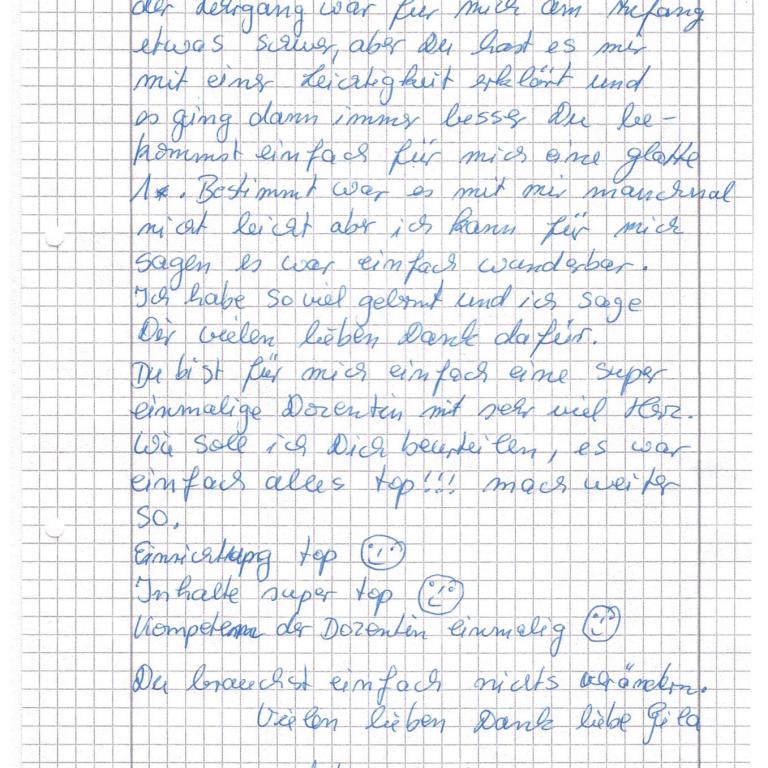 der Lehrgang war für mich am Anfang
etwas schwer, aber Du hast es mir
mit einer Leichtigkeit erklärt und
es ging dann immer besser Du be-
kommst einfach für mich eine glatte
1*. Bestimmt war es mit mir manchmal
nicht leicht aber ich kann für mich
sagen es war einfach wunderbar.
Ich habe so viel gelernt und ich sage
Dir vielen lieben Dank dafür.
Du bist für mich einfach eine super
einmalige Dozentin mit sehr viel Herz.
Wie soll ich Dich beurteilen, es war
einfach alles top!!! mach weiter
so.
Einrichtung top
Inhalte super top
Kompetenz der Dozentin einmalig
Du brauchst einfach nichts verändern.
Vielen lieben Dank liebe Gila